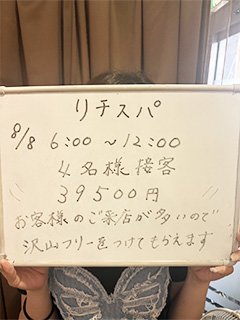 リチスパ
8/8 6:00～12:00
4名様接客
39500円
お客様のご来店が多いので
沢山フリーをつけてもらえます